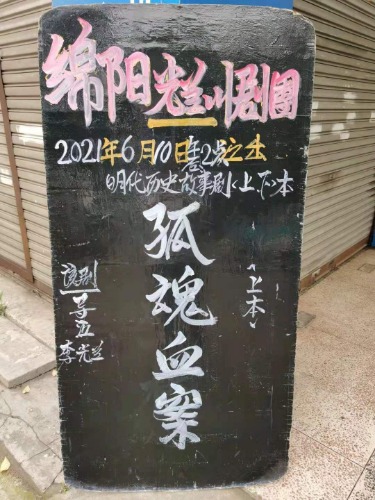 绵阳光兰川剧团
2021年6月10日 2点之出
明代历史故事剧<上下>本
孤魂血案
<上本>
李光兰